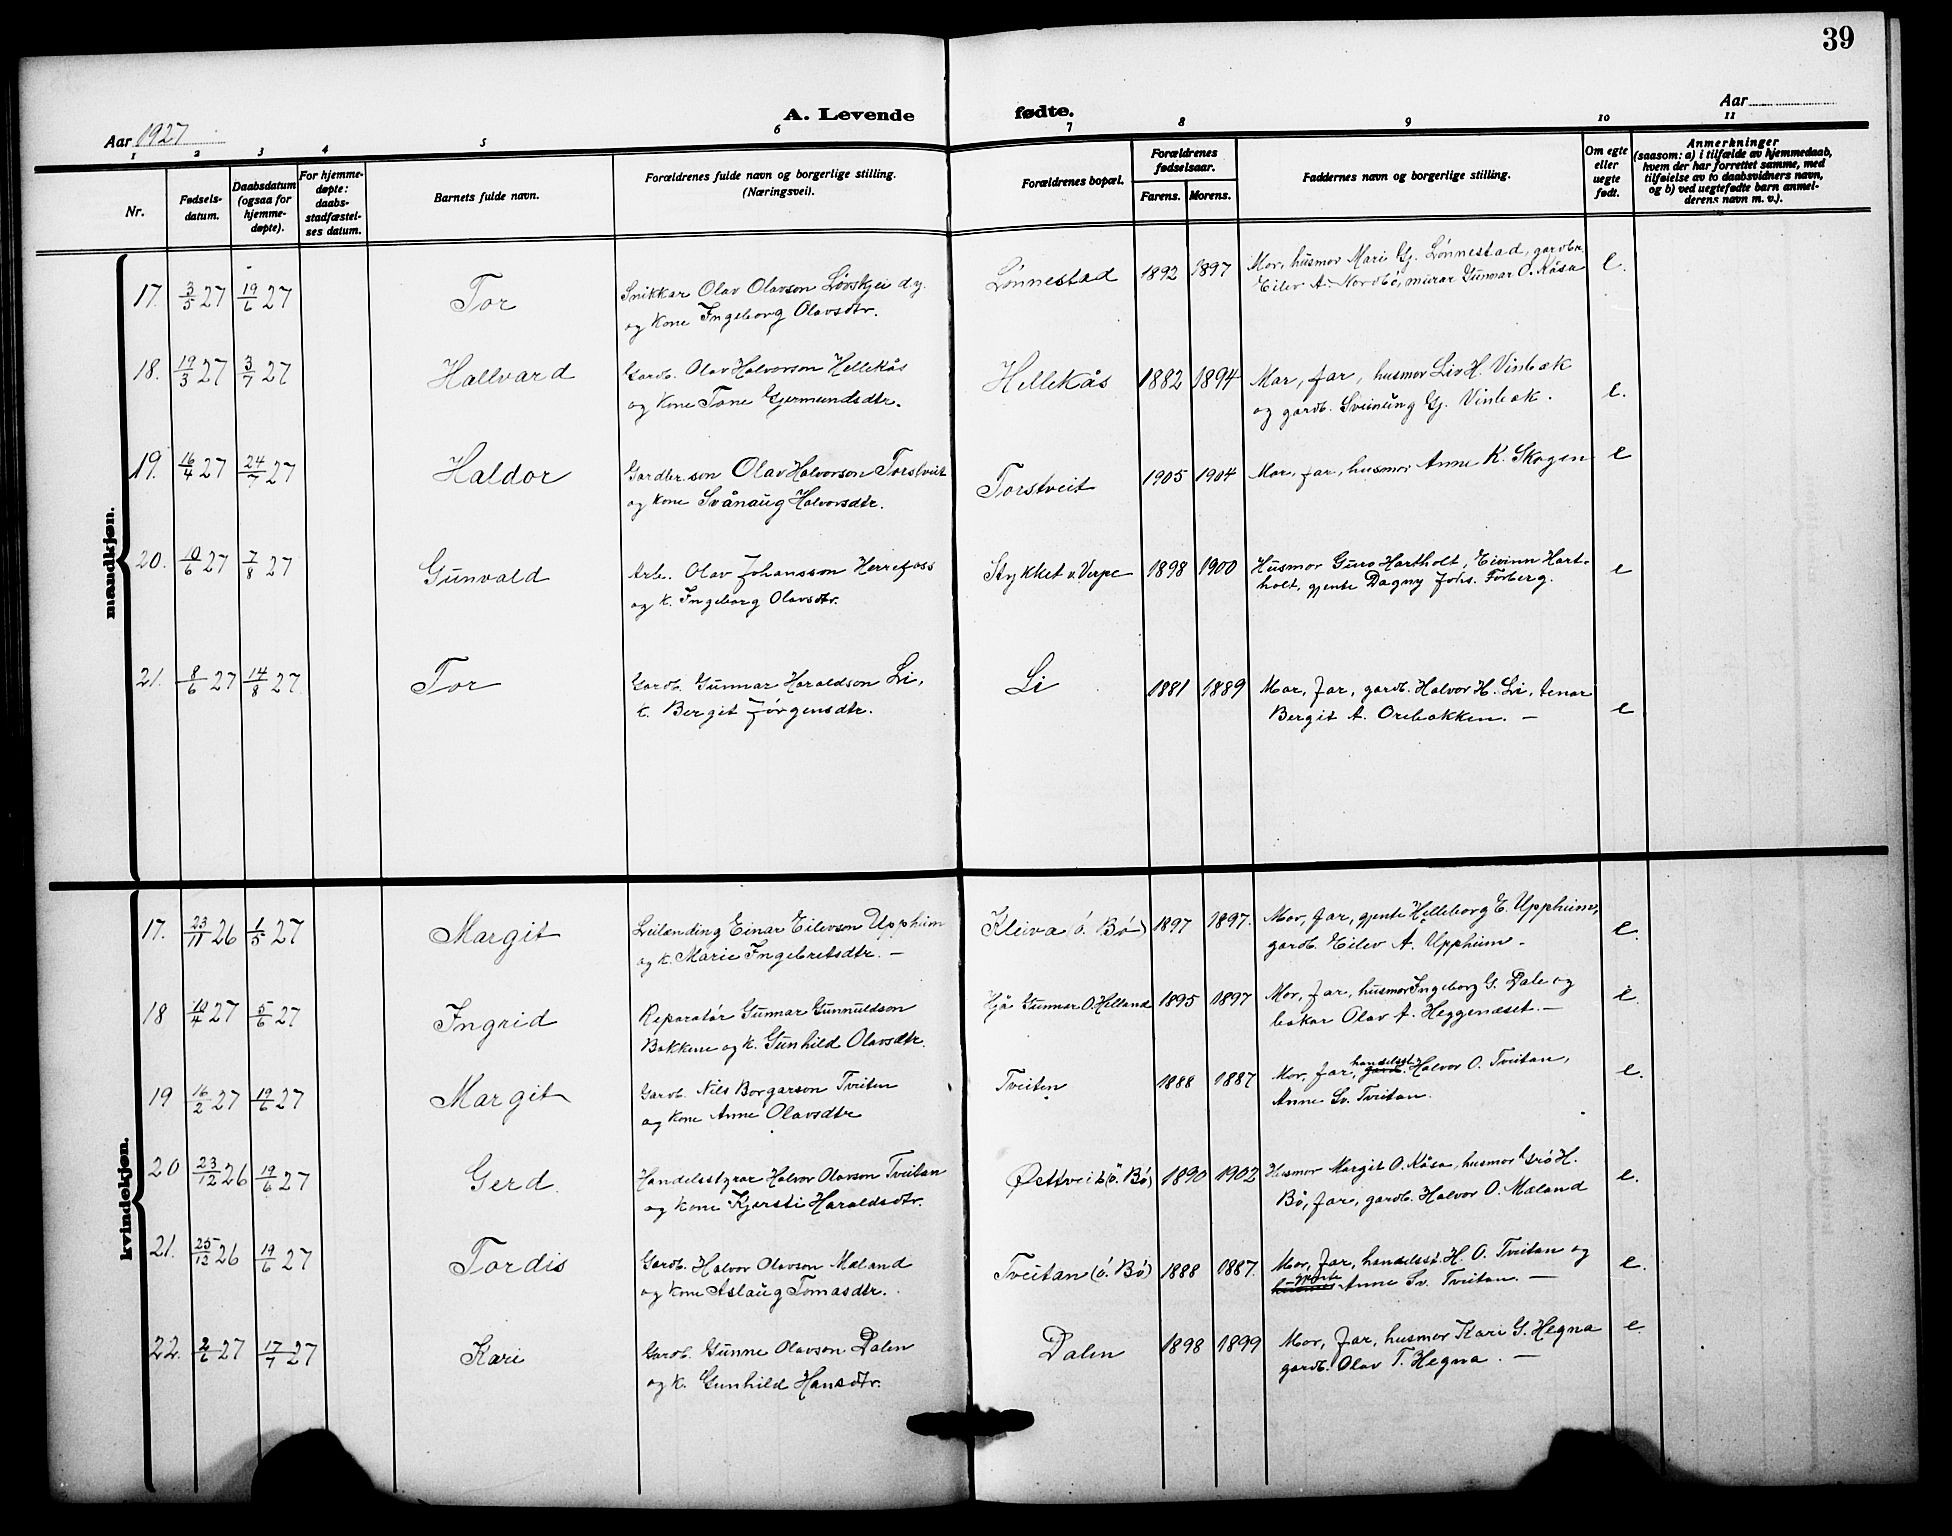 39
A. Levende fødte.
Aar 1927
Aar
1 2 3 4 5 6 7 8 9 10 11
Nr.
Fødsels-
datum.
Daabsdatum
(ogsaa for
hjemme-
døpte).
For hjemme-
døpte:
daabs-
stadfæstel-
ses datum.
Barnets fulde navn.
Forældrenes fulde navn og borgerlige stilling.
(Næringsvei).
Forældrenes bopæl.
Forældrenes
fødselsaar.
Farens. Morens.
Faddernes navn og borgerlige stilling.
Om egte
eller
uegte
født.
Anmerkninger
(saasom: a) i tilfælde av hjemmedaab,
hvem der har forrettet samme, med
tilføielse av to daabsvidners navn,
og b) ved uegtefødte barn anmel-
derens navn m. v.).
mandkjøn.
17. 3/5 27 19/6 27 Tor Snikkar Olav Olavson Løvskjei d.y. Lønnestad 1892 1897 Mor, husmor Mari Gj. Lønnestad, gardbr. e.
og kone Ingeborg Olavsdtr. Eilev A. Nordbø, murar Gunnar O. Kåsa
18. 19/3 27 3/7 27 Hallvard Gardb. Olav Halvorson Hellekås Hellekås 1882 1894 Mor, far, husmor Liv H. Vinbak e.
og kone Tone Gjermundsdtr. og gardb. Sveinung Gj. Vinbak.
19. 16/4 27 24/7 27 Haldor Gardbr.son Olav Halvorson Torstveit Torstveit 1905 1904 Mor, far, husmor Anne K. Skogen e
og kone Svånaug Halvorsdtr.
20. 10/6 27 7/8 27 Gunvald Arb. Olav Johansson Herrefoss Stykket v. Verpe 1898 1900 Husmor Guro Hartholt, Eivinn Hart- e
og k. Ingeborg Olavsdtr. holt, gjente Dagny Johs. Forberg.
21. 8/6 27 14/8 27 Tor Gardb. Gunnar Haraldson Li, Li 1881 1889 Mor, far, gardb. Halvor H. Li, tenar e
k. Bergit Jørgensdtr. Bergit A. Orebakken. —
kvindekjøn.
17. 23/11 26 1/5 27 Margit Leilending Einar Eilevson Uppheim Kleiva (ö. Bø) 1897 1897. Mor, far, gjente Helleborg E. Uppheim, e.
og k. Marie Ingebretsdtr. — gardb. Eilev A. Uppheim.
18 10/4 27 5/6 27 Ingrid Reparatør Gunnar Gunnuldson Hjå Gunnar O. Helland 1895 1897 Mor, far, husmor Ingeborg G. Dale og e.
Bakkene og k. Gunhild Olavsdtr. bakar Olav A. Heggenæset. —
19 16/2 27 19/6 27 Margit Gardb. Nils Borgarson Tveiten Tveiten 1888 1887 Mor, far, handelsst. Halvor O. Tveitan, e.
og kone Anne Olavsdtr Anne Sv. Tveitan.
20 23/12 26 19/6 27 Gerd. Handelsstyrar Halvor Olavson Tveitan Østtveit (ö. Bø) 1890 1902 Husmor Margit O. Kåsa, husmor Gró H. e.
og kone Kjersti Haraldsdtr. Bø, far, gardb. Halvor O. Maland
21. 25/12 26 19/6 27 Tordis Gardb. Halvor Olavson Maland Tveitan (ö. Bø) 1888 1887. Mor, far, handelsst. H. O. Tveitan og e.
og kone Aslaug Tomasdtr. gjente Anne Sv. Tveitan. —
22. 2/6 27 17/7 27 Kari Gardb. Gunne Olavson Dalen Dalen 1898 1899 Mor, far, husmor Kari G. Hegna e.
og k. Gunhild Hansdtr. gardb. Olav T. Hegna. —